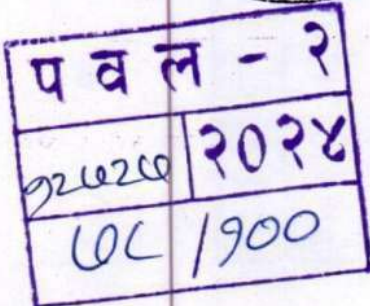 प व ल - २
१२७२७ २०२४
७८ /१००